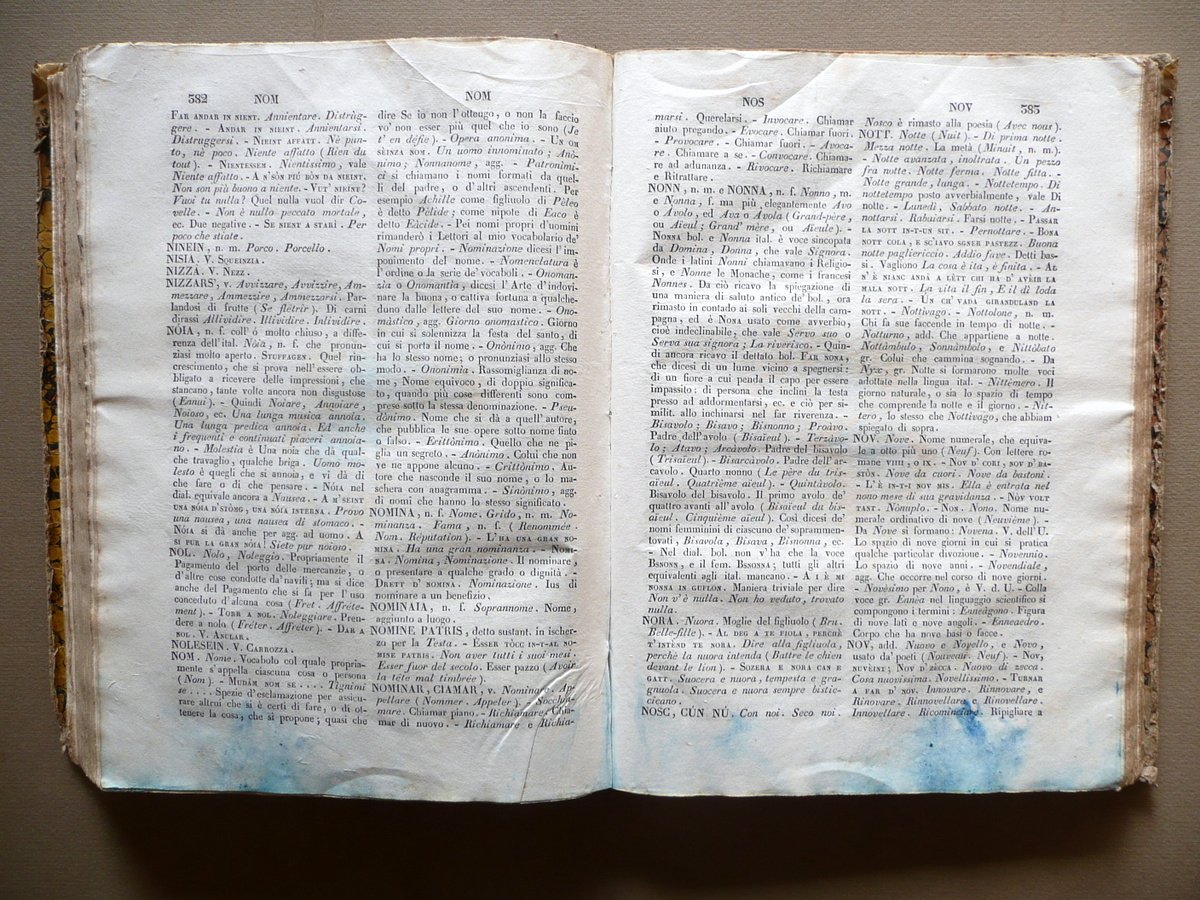 382 NOM NOM
Far andar in nient. Annientare. Distrùg-
gere. - Andar in nieint. Annientarsi.
Distruggersi. - Nieint affatt. Nè pun-
to, nè poco. Niente affatto (Rien du
tout). - Nientessem. Nientissimo, vale
Niente affatto. - A n'són più bòn da nieint.
Non son più buono a niente. - Vut' nieint?
Vuoi tu nulla? Quel nulla vuol dir Co-
velle. - Non è nullo peccato mortale,
ec. Due negative. - Se nient a stari. Per
poco che stiate.
NINEIN, n. m. Porco. Porcello.
NISIA. V. Squeinzia.
NIZZÀ. V. Nezz.
NIZZARS', v. Avvizzare, Avvizzire, Am-
mezzare, Ammezzire, Ammezzarsi. Par-
landosi di frutte (Se flétrir). Di carni
dirassi Allividire. Illividire. Inlividire.
NÓIA, n. f. coll' ó molto chiuso, a diffe-
renza dell'ital. Nòia, n. f. che pronun-
ziasi molto aperto. Stuffagen. Quel rin-
crescimento, che si prova nell'essere ob-
bligato a ricevere delle impressioni, che
stancano, tante volte ancora non disgustose
(Ennui). - Quindi Noiare, Annoiare,
Noioso, ec. Una lunga musica annoia.
Una lunga predica annoia. Ed anche
i frequenti e continuati piaceri annoia-
no. - Molestia è Una noia che dà qual-
che travaglio, qualche briga. Uomo mo-
lesto è quegli che si annoia, e vi dà di
che fare o di che pensare. - Nóia nel
dial. equivale ancora a Nausea. - A m'seint
una nóia d'stomg, una nóia interna. Provo
una nausea, una nausea di stomaco. -
Nóia si dà anche per agg. ad uomo. A
si pur la gran nóia! Siete pur noioso.
NOL. Nolo, Noleggio. Propriamente il
Pagamento del porto delle mercanzie, o
d'altre cose condotte da'navili; ma si dice
anche del Pagamento che si fa per l'uso
conceduto d'alcuna cosa (Fret. Affréte-
ment). - Torr a nol. Noleggiare. Pren-
dere a nolo (Fréter. Affréter). - Dar a
nol. V. Anclar.
NOLESEIN. V. Carrozza.
NOM. Nome. Vocabolo col quale propria-
mente s'appella ciascuna cosa o persona
(Nom). - Mudàm nom se .... Tignimi
se .... Spezie d'esclamazione per assicu-
rare altrui che si è certi di fare, o di ot-
tenere la cosa, che si propone; quasi che
dire Se io non l'ottengo, o non la faccio
vo' non esser più quel che io sono (Je
t' en défie). - Opera anonima. - Un om
sèinza nom. Un uomo innominato; Anò-
nimo; Nonnanome, agg. - Patronìmi-
ci si chiamano i nomi formati da quel-
li del padre, o d'altri ascendenti. Per
esempio Achille come figliuolo di Pèleo
è detto Pèlide; come nipote di Eaco è
detto Eàcide. - Pei nomi proprj d'uomini
rimanderò i Lettori al mio vocabolario de'
Nomi proprj. - Nominazione dicesi l'im-
ponimento del nome. - Nomenclatura è
l'ordine o la serie de' vocaboli. - Onoman-
zìa o Onomantìa, dicesi l'Arte d'indovi-
nare la buona, o cattiva fortuna a qualche-
duno dalle lettere del suo nome. - Ono-
màstico, agg. Giorno onomastico. Giorno
in cui si solemnizza la festa del santo, di
cui si porta il nome. - Onònimo; agg. Che
ha lo stesso nome; o pronunziasi allo stesso
modo. - Ononimìa. Rassomiglianza di no-
me, Nome equivoco, di doppio significa-
to, quando più cose differenti sono com-
prese sotto la stessa denominazione. - Pseu-
dònimo. Nome che si dà a quell'autore,
che pubblica le sue opere sotto nome finto
o falso. - Erittònimo. Quello che ne pi-
glia un segreto. - Anònimo. Colui che non
ve ne appone alcuno. - Crittònimo. Au-
tore che nasconde il suo nome, o lo ma-
schera con anagramma. - Sinònimo, agg.
di nomi che hanno lo stesso significato.
NOMINA, n. f. Nome. Grido, n. m. No-
minanza. Fama, n. f. (Renommée.
Nom. Réputation). - L'ha una gran no-
mina. Ha una gran nominanza. - Nomi-
na. Nomina, Nominazione. Il nominare,
o presentare a qualche grado o dignità. -
Drett d' nomina. Nominazione. Ius di
nominare a un benefizio.
NOMINAIA, n. f. Soprannome. Nome,
aggiunto a luogo.
NOMINE PATRIS, detto sustant. in ischer-
zo per la Testa. - Esser tócc in-t-al no-
mine patris. Non aver tutti i suoi mesi.
Esser fuor del secolo. Esser pazzo (Avoir
la tête mal timbrée).
NOMINAR, CIAMAR, v. Nominare. Ap-
pellare (Nommer. Appeler). - Socchia-
mare. Chiamar piano. - Richiamare. Chia-
mar di nuovo. - Richiamare e Richia-
NOS NOV 383
marsi. Querelarsi. - Invocare. Chiamar
aiuto pregando. - Evocare. Chiamar fuori.
- Provocare. - Chiamar fuori. - Avoca-
re. Chiamare a se. - Convocare. Chiama-
re ad adunanza. - Rivocare. Richiamare
e Ritrattare.
NONN, n. m. e NONNA, n. f. Nonno, m.
e Nonna, f. ma più elegantemente Avo
o Avolo, ed Ava o Avola (Grand-père,
ou Aieul; Grand' mère, ou Aieule). -
Nonna bol. e Nonna ital. è voce sincopata
da Domina, Donna, che vale Signora.
Onde i latini Nonni chiamavano i Religio-
si, e Nonne le Monache, come i francesi
Nonnes. Da ciò ricavo la spiegazione di
una maniera di saluto antico de' bol., ora
rimasto in contado ai soli vecchi della cam-
pagna, ed è Nona usato come avverbio,
cioè indeclinabile, che vale Servo suo o
Serva sua signora; La riverisco. - Quin-
di ancora ricavo il dettato bol. Far nona,
che dicesi di un lume vicino a spegnersi:
di un fiore a cui penda il capo per essere
impassito: di persona che inclini la testa
presso ad addormentarsi, ec. e ciò per si-
milit. allo inchinarsi nel far riverenza. -
Bisavolo; Bisavo; Bisnonno; Proàvo.
Padre dell'avolo (Bisaieul). - Terzàvo-
lo; Atavo; Arcàvolo. Padre del bisavolo
(Trisaieul). - Bisarcàvolo. Padre dell'ar-
cavolo. Quarto nonno (Le père du tris-
aieul. Quatrième aieul). - Quintàvolo.
Bisavolo del bisavolo. Il primo avolo de'
quattro avanti all'avolo (Bisaieul du bis-
aieul. Cinquième aieul). Così dicesi de'
nomi femminini di ciascuno de'soprammen-
tovati, Bisavola, Bisava, Bisnonna, ec.
- Nel dial. bol. non v'ha che la voce
Bsnonn, e il fem. Bsnonna; tutti gli altri
equivalenti agli ital. mancano. - A i è mi
nonna in guflon. Maniera triviale per dire
Non v'è nulla. Non ho veduto, trovato
nulla.
NORA. Nuora. Moglie del figliuolo (Bru.
Belle-fille). - Al deg a te fiola, perchè
t'intènd te nora. Dire alla figliuola,
perchè la nuora intenda (Battre le chien
devant le lion). - Sozera e nora can e
gatt. Suocera e nuora, tempesta e gra-
gnuola. Suocera e nuora sempre bistic-
ciano.
NOSC, CÚN NÚ. Con noi. Seco noi.
Nosco è rimasto alla poesia (Avec nous).
NOTT. Notte (Nuit). - Di prima notte.
Mezza notte. La metà (Minuit, n. m.).
- Notte avanzata, inoltrata. Un pezzo
fra notte. Notte ferma. Notte fitta. -
Notte grande, lunga. - Nottetempo. Di
nottetempo posto avverbialmente, vale Di
notte. - Lunedì, Sabbato notte. - An-
nottarsi. Rabuiarsi. Farsi notte. - Passar
la nott in-t-un sit. - Pernottare. - Bona
nott cola, e sc'iavo sgner pastezz. Buona
notte pagliericcio. Addio fave. Detti bas-
si. Vagliono La cosa è ita, è finita. - Al
n'è nianc andà a lètt chi ha d' avèir la
mala nott. La vita il fin, E il dì loda
la sera. - Un ch' vada giranduland la
nott. - Nottivago. - Nottolone, n. m.
Chi fa sue faccende in tempo di notte. -
Notturno, add. Che appartiene a notte.
Nottàmbulo, Sonnàmbolo, e Nittòbato
gr. Colui che cammina sognando. - Da
Nyxc, gr. Notte si formarono molte voci
adottate nella lingua ital. - Nittèmero. Il
giorno naturale, o sia lo spazio di tempo
che comprende la notte e il giorno. - Nit-
tero, lo stesso che Nottivago, che abbiam
spiegato di sopra.
NÒV. Nove. Nome numerale, che equiva-
le a otto più uno (Neuf). Con lettere ro-
mane viiii, o ix. - Nov d' cori, nov d' ba-
stòs. Nove da cuori. Nove da bastoni.
- L' è in-t-i nov mis. Ella è entrata nel
nono mese di sua gravidanza. - Nòv volt
tant. Nònuplo. - Non. Nono. Nome nu-
merale ordinativo di nove (Neuvième). -
Da Nove si formano: Novena. V. dell'U.
Lo spazio di nove giorni in cui si pratica
qualche particolar divozione. - Novennio.
Lo spazio di nove anni. - Novendiale,
agg. Che occorre nel corso di nove giorni.
- Novèsimo per Nono, è V. d. U. - Colla
voce gr. Ennèa nel linguaggio scientifico si
compongono i termini: Enneàgono. Figura
di nove lati e nove angoli. - Enneaedro.
Corpo che ha nove basi o facce.
NOV, add. Nuovo e Novello, e Novo,
usato da'poeti (Nouveau. Neuf). - Nov,
nuvèint; Nov d' zecca. Nuovo di zecca.
Cosa nuovissima. Novellissimo. - Turnar
a far d' nov. Innovare. Rinnovare, e
Rinovare. Rinnovellare e Rinovellare.
Innovellare. Ricominciare. Ripigliare a